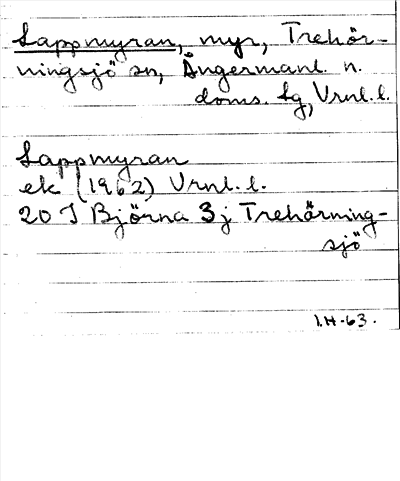 Lappmyran, myr, Trehör-
ningsjö sn, Ångermanl. n.
doms. lg, Vrnl. l.
Lappmyran
ek (1962) Vrnl. l.
20 J Björna 3 j Trehörning-
sjö
I.H-63.